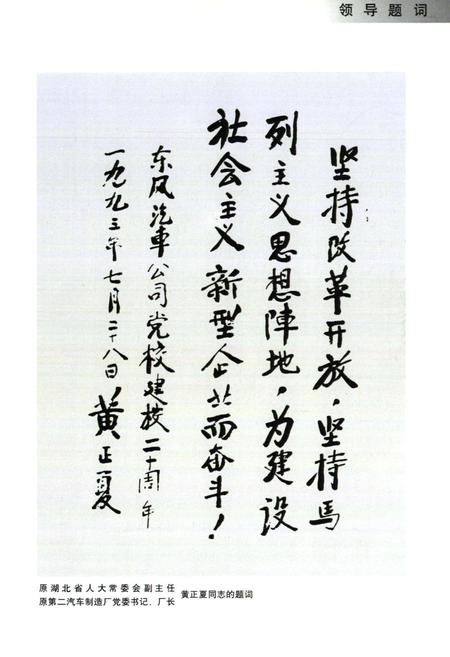 领导题词
坚持改革开放，坚持马
列主义思想陣地，为建设
社会主义新型企业而奋斗！
东风汽車公司党校建校二十周年
一九九三年七月二十八日
黄正夏
原湖北省人大常委会副主任
原第二汽车制造厂党委书记、厂长
黄正夏同志的题词